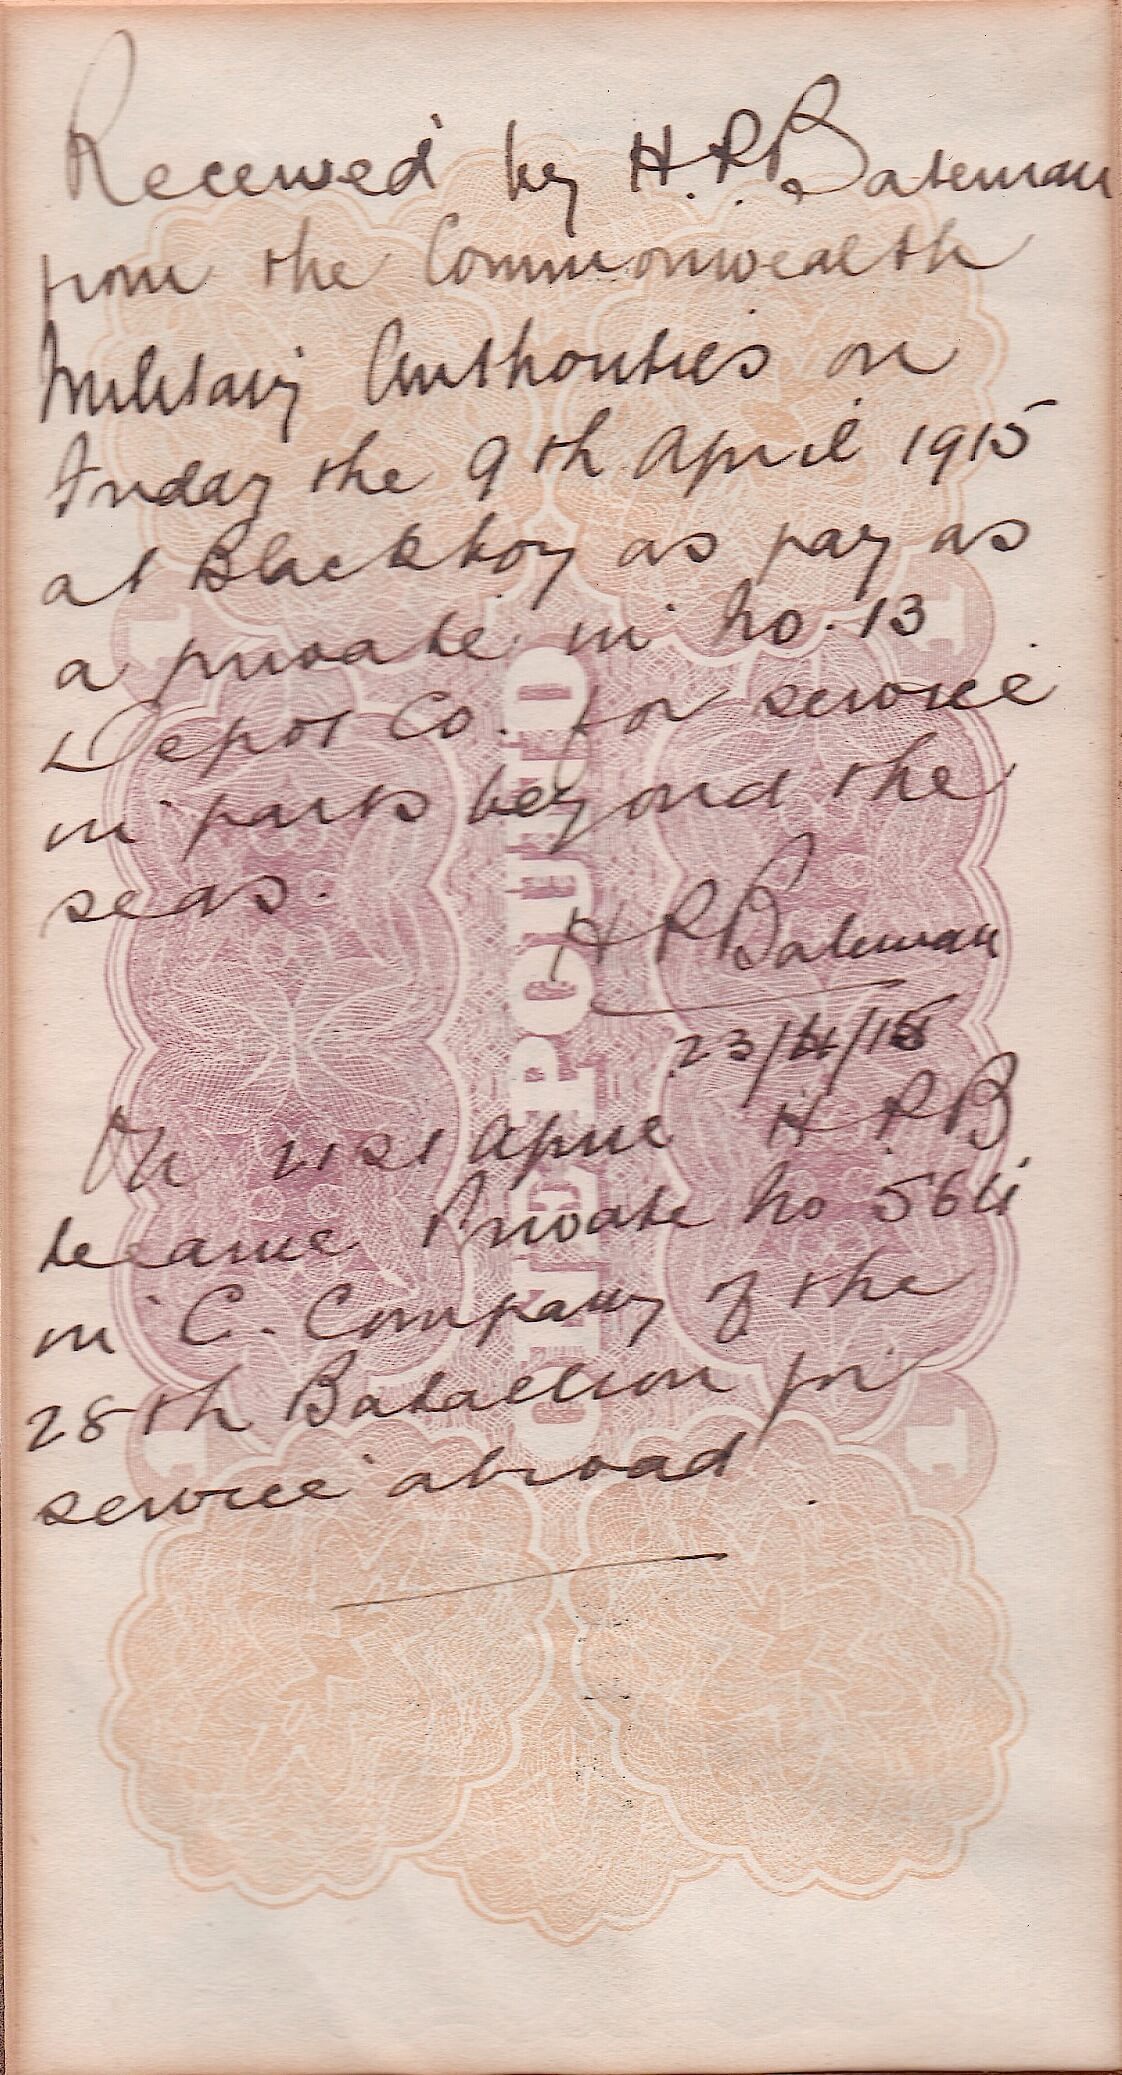 Received by H. P. Bateman
from the Commonwealth
Military Authorities on
Friday the 9th April 1915
at Blackboy as pay as
a private in No. 13
Depot Co. for service
in parts beyond the
seas.
H P Bateman
23/4/15
On 21st April H. P. B
became Private No 564
in C. Company of the
28th Battalion for
service abroad
ONE POUND
1
1
1
1